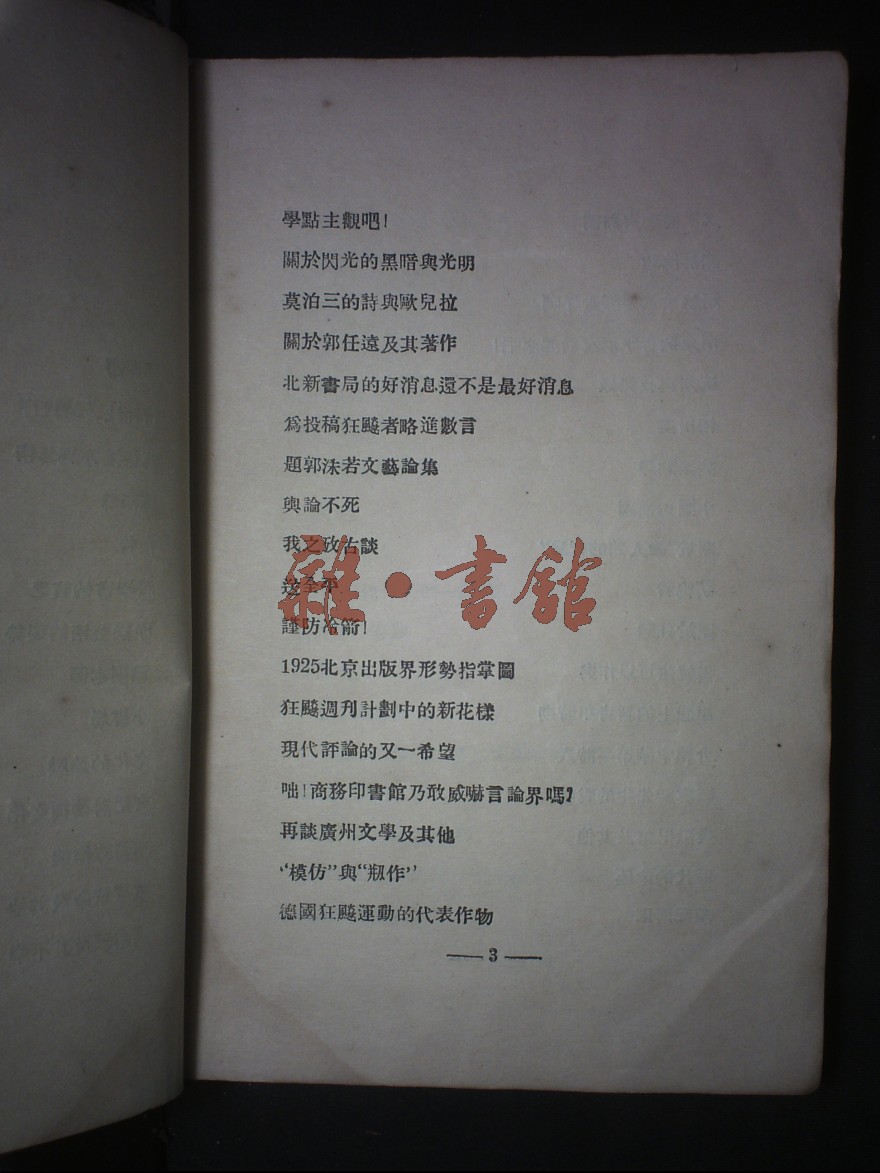 學點主觀吧!
關於閃光的黑暗與光明
莫泊三的詩與歐兒拉
關於郭任遠及其著作
北新書局的好消息還不是最好消息
爲投稿狂飈者略進數言
題郭沫若文藝論集
輿論不死
我之政古談
送全平
謹防冷箭!
1925北京出版界形勢指掌圖
狂飈週刊計劃中的新花樣
現代評論的又一希望
咄!商務印書館乃敢威嚇言論界嗎?
再談廣州文學及其他
“模仿”與“剏作”
德國狂飈運動的代表作物
—— 3 ——
雜·書館